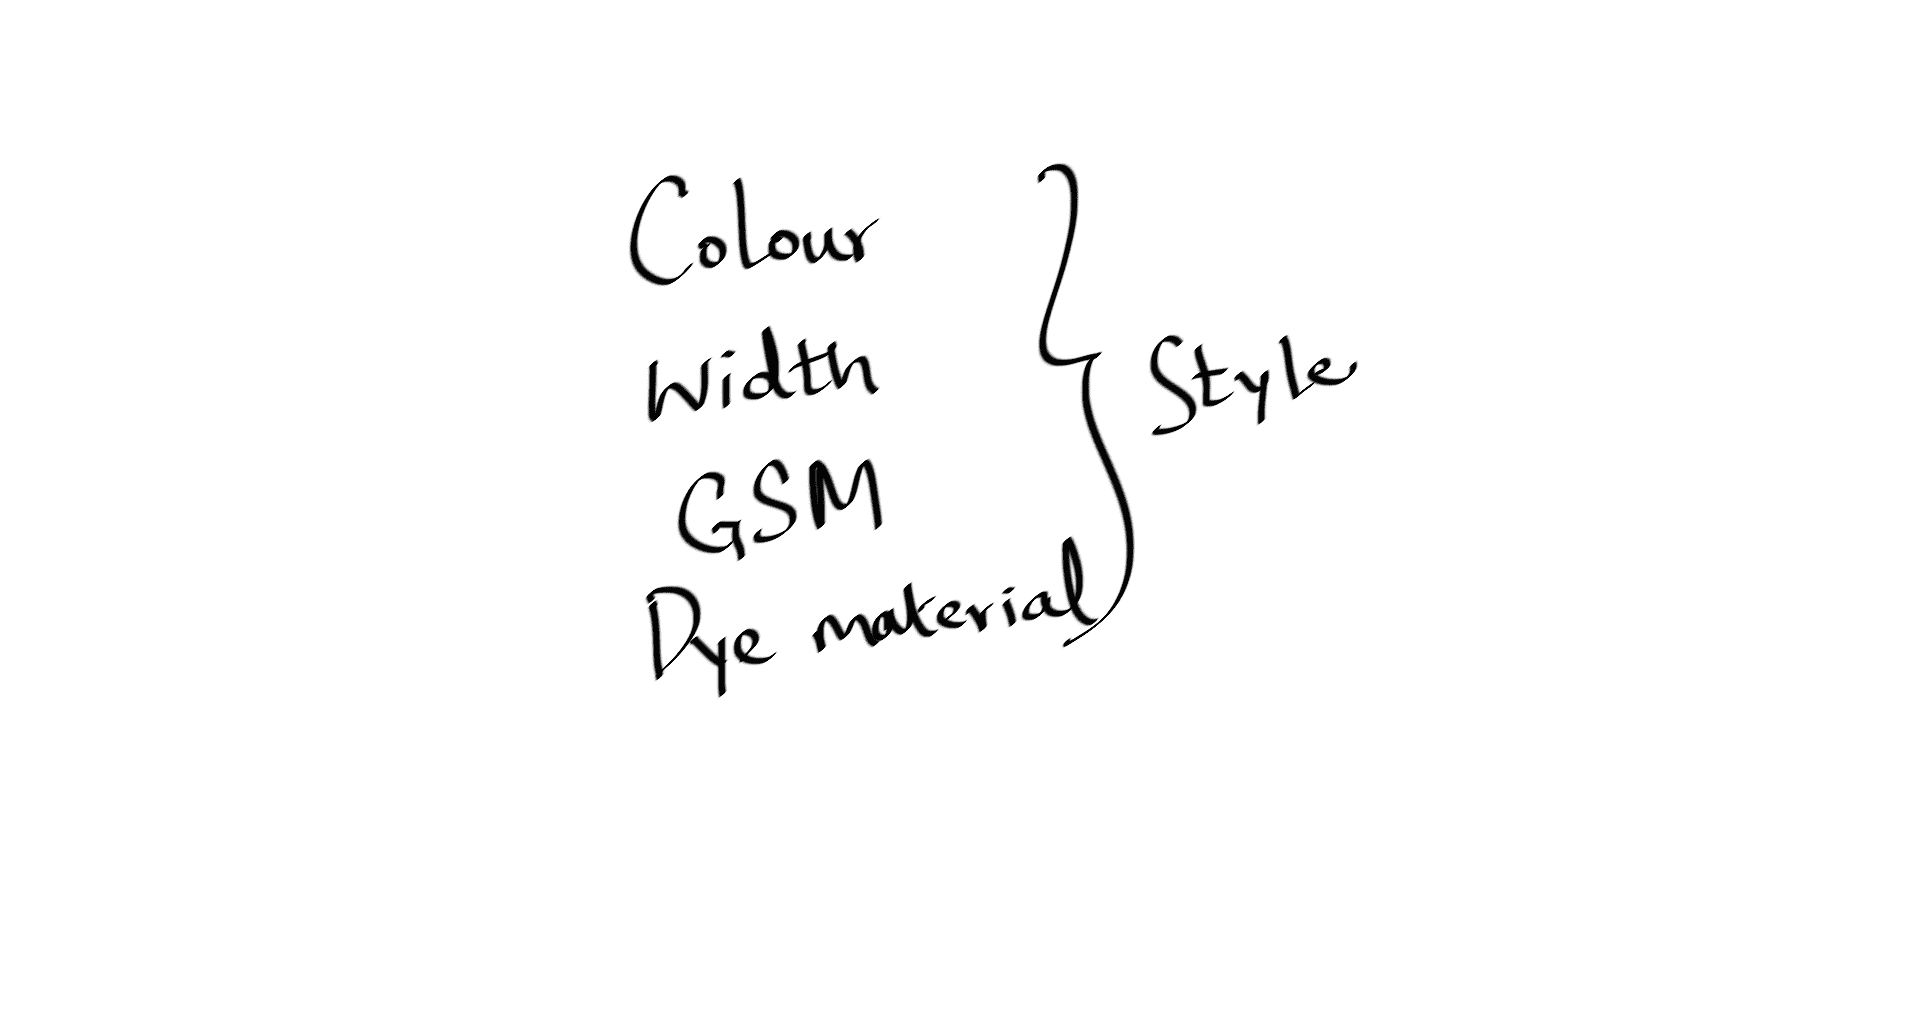 Colour
Width
GSM
Dye material
Style